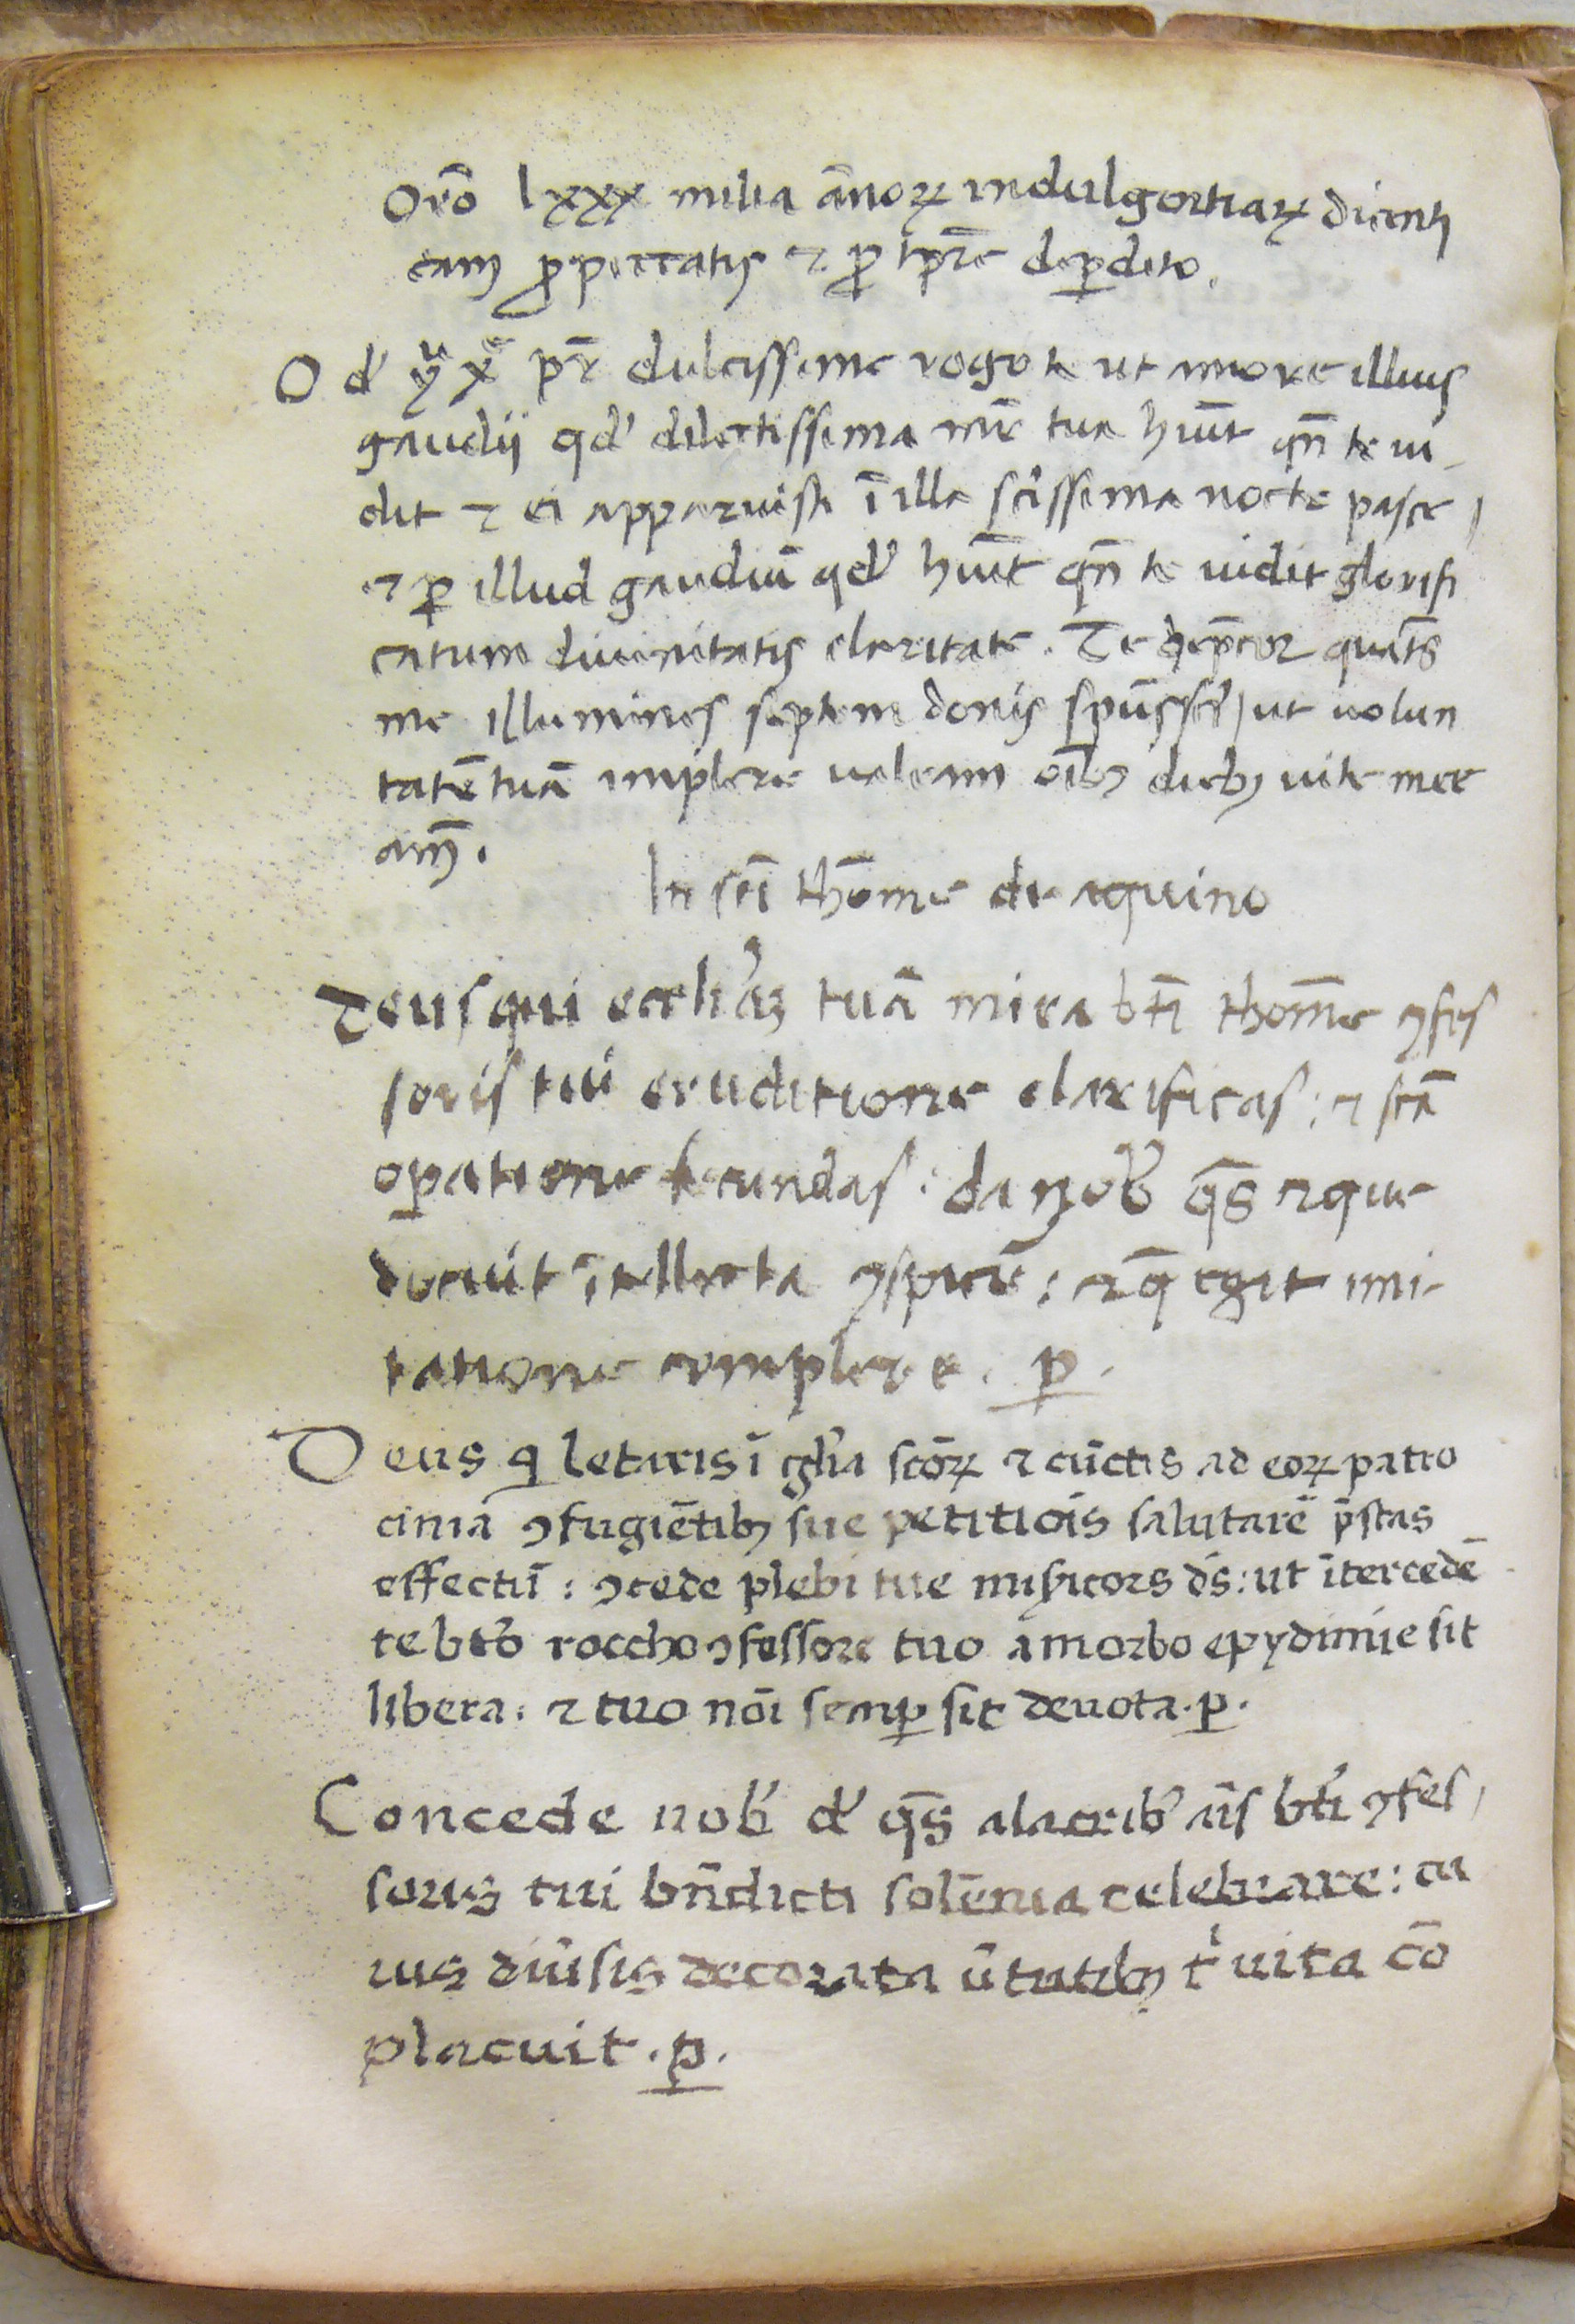 Orõ lxxx milia ãnoꝝ indulgentiaꝝ dicentj
eam ꝓ peccatis ⁊ ꝓ tp̄re deꝑdito.
O d' yͧ xͤ pr̄ dulcissime rogo te ut amore illius
gaudij qd' dilectissima mr̄ tua hũit qñ te ui-
dit ⁊ ei apparuisti ĩ illa scĩssima nocte pasce /
et ꝓ illud gaudiũ qd' hũit qñ te uidit glorifi
catum diuinitatis claritate. Te dep̄cor quatꝰ̄
me illumines septem donis spũs sc̃i / ut uolun
tatẽ tuã implere ualeam oĩbꝫ diebꝫ uite mee
am̄.
In sc̄i thōme de aquino
Deus qui eccl'iaꝫ tuã mira bt̄i thom̄e ꝯfes
soris tui eruditione clarificas: ⁊ scã
oꝑatione fecundas: da nob' qs̄ ⁊ que
docuit ĩtellectu ꝯspicẽ: ⁊ q̄ egit imi-
tatione complere. p.
Deus qͥ letaris ĩ gl'ia scõꝝ ⁊ cũctis ad eoꝝ patro
cinia ꝯfugiẽtibꝫ sue petitiõis salutarẽ p̄stas
effectũ: ꝯcede plebi tue misiꝑicors ds̄: ut ĩtercedẽ
te bt̃o roccho ꝯfessore tuo a morbo epydimie sit
libera: ⁊ tuo nōi semꝑ sit deuota. p.
Concede nob' d' qs̄ alacrib' ãis bt̄i ꝯfes /
soris tui bñdicti solẽnia celebrare: cu
ius diũsis decorata ũtutibꝫ tͥ uita cō
placuit. p.